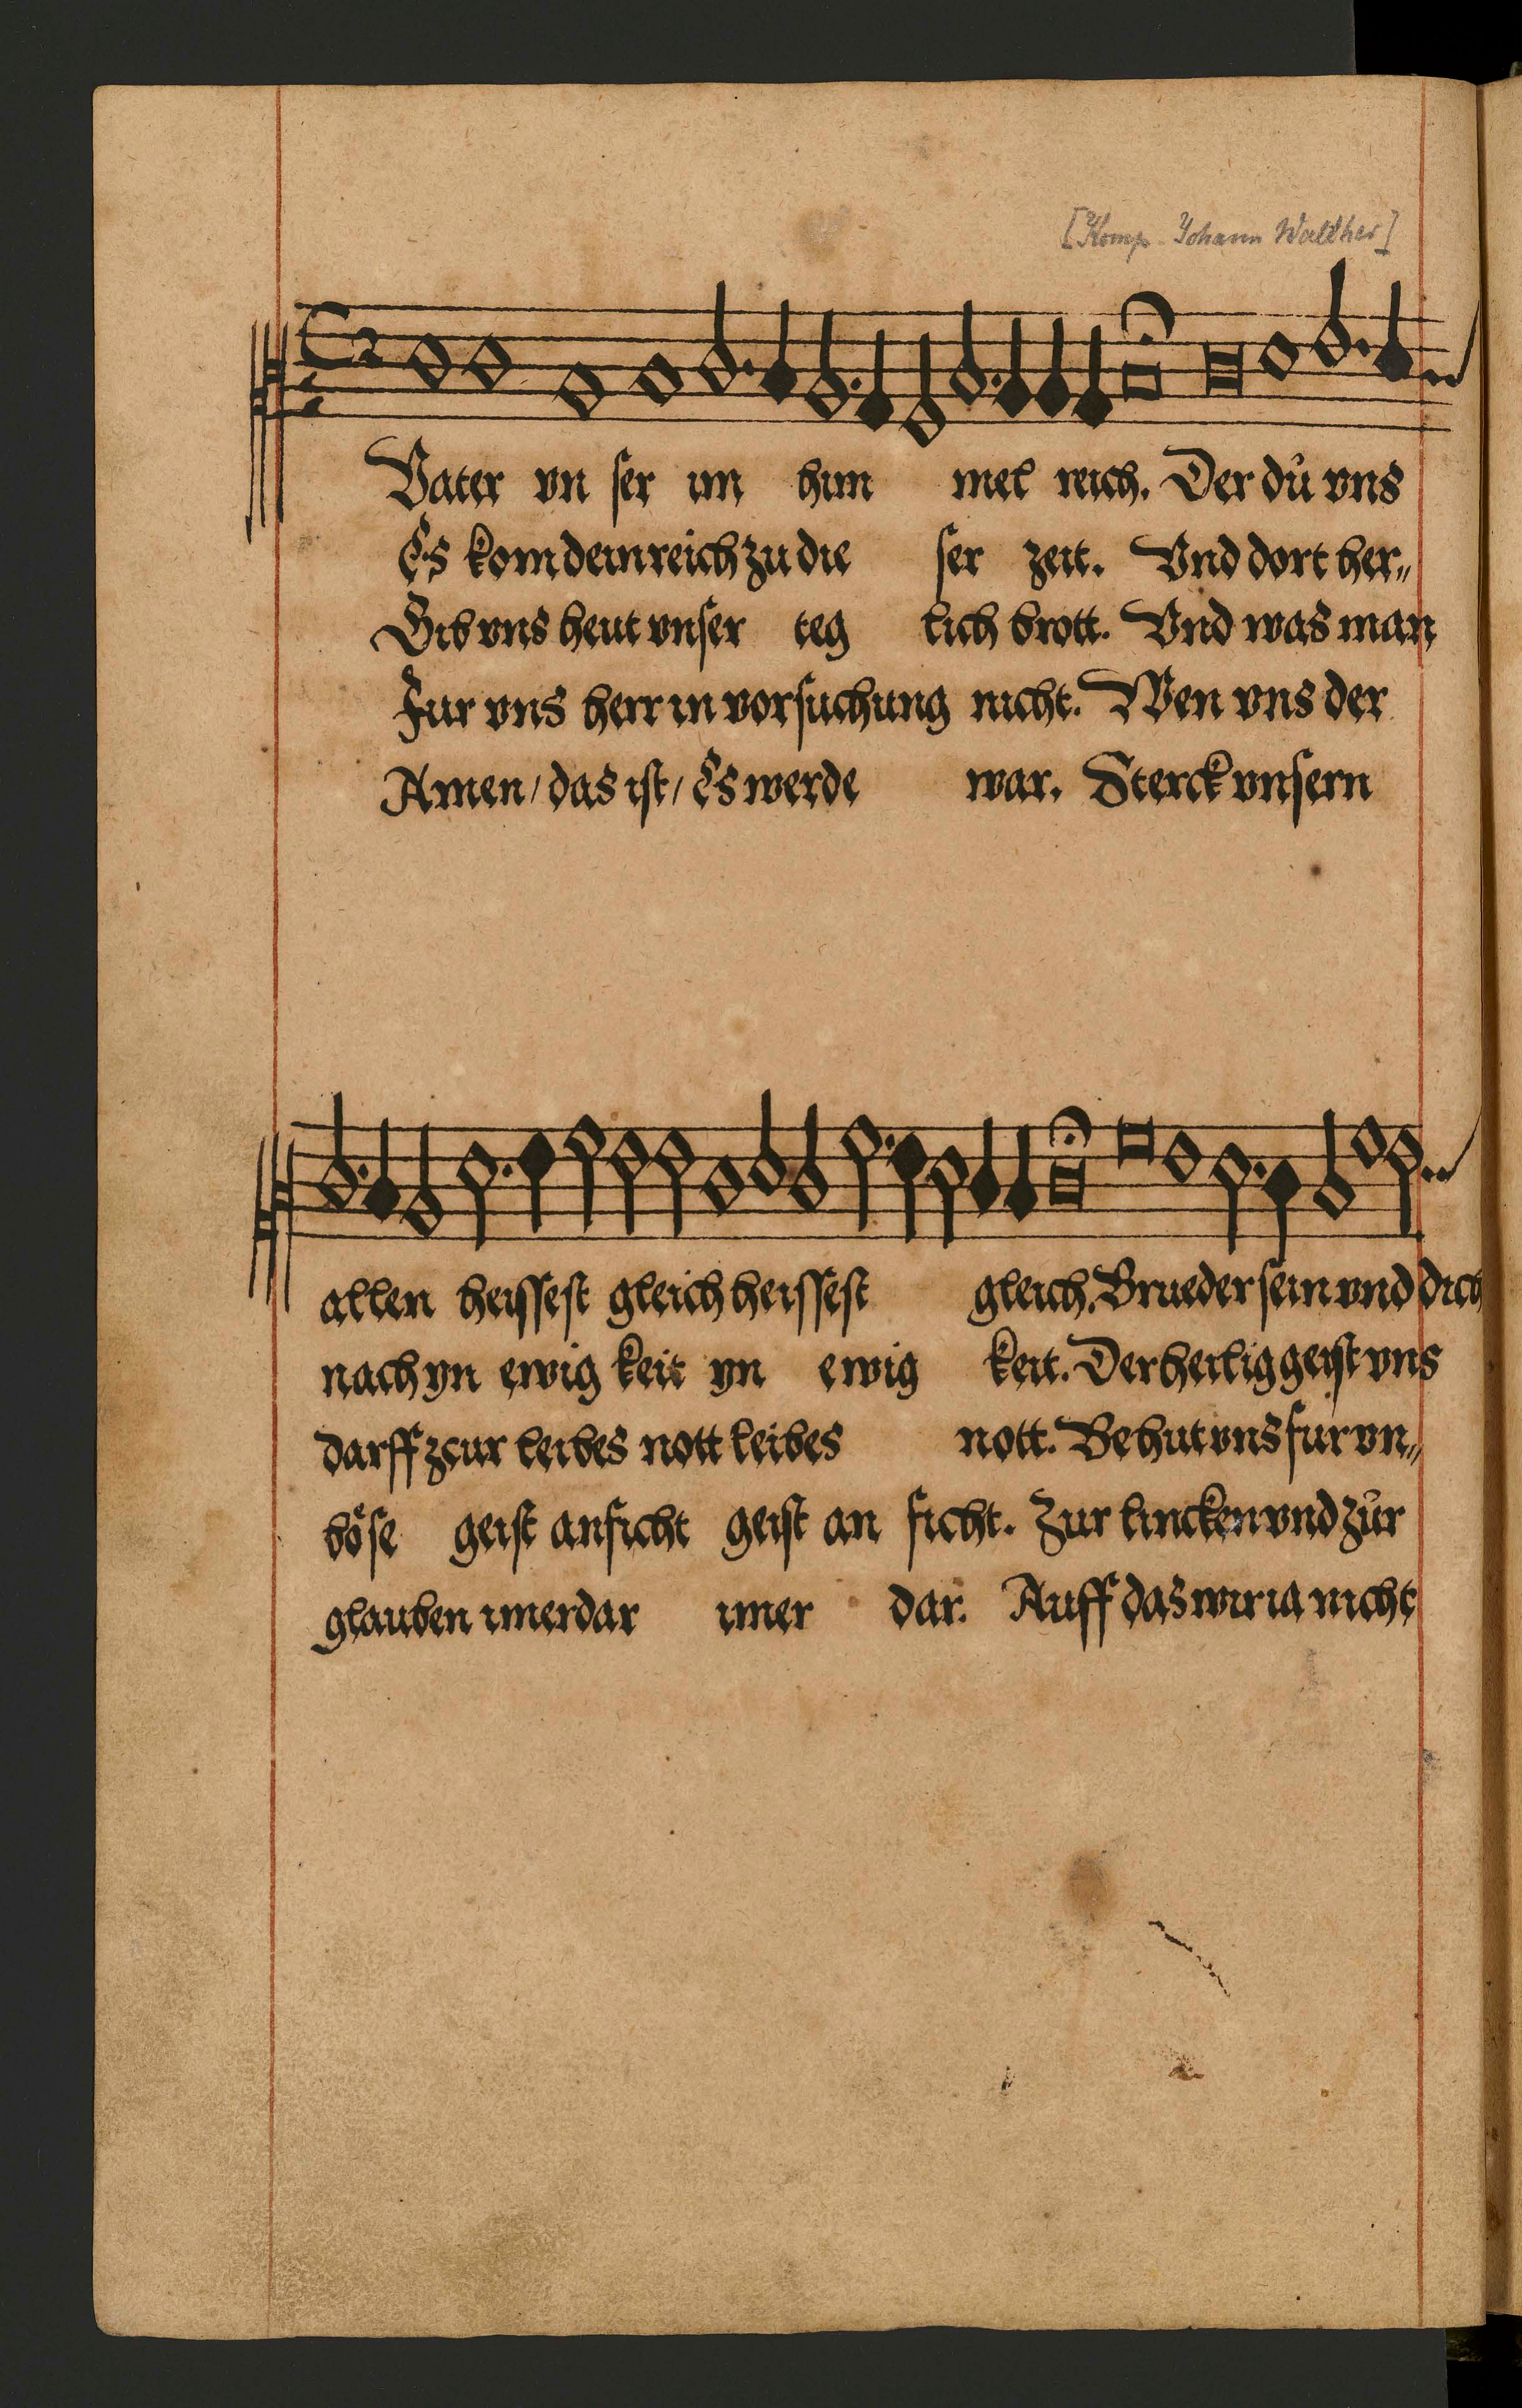 [Komp. Johann Walther]
Vater vn ser im him mel reich. Der dů vns
Es kom dein reich zu die ser zeit. Vnd dort her„
Gib vns heut vnser teg lich brott. Vnd was man
Fur vns herr in vorsuchung nicht. Wen vns der
Amen/ das ist/ Es werde war. Sterck vnsern
allen heissest gleich heissest gleich. Brueder sein vnd dich
nach yn ewig keit yn ewig keit. Der heilig geist vns
darff zcur leibes nott leibes nott. Behut vns fur vn„
böse geist anficht geist an ficht. Zur lincken vnd zůr
glauben imerdar imer dar. Auff das wir ia nicht